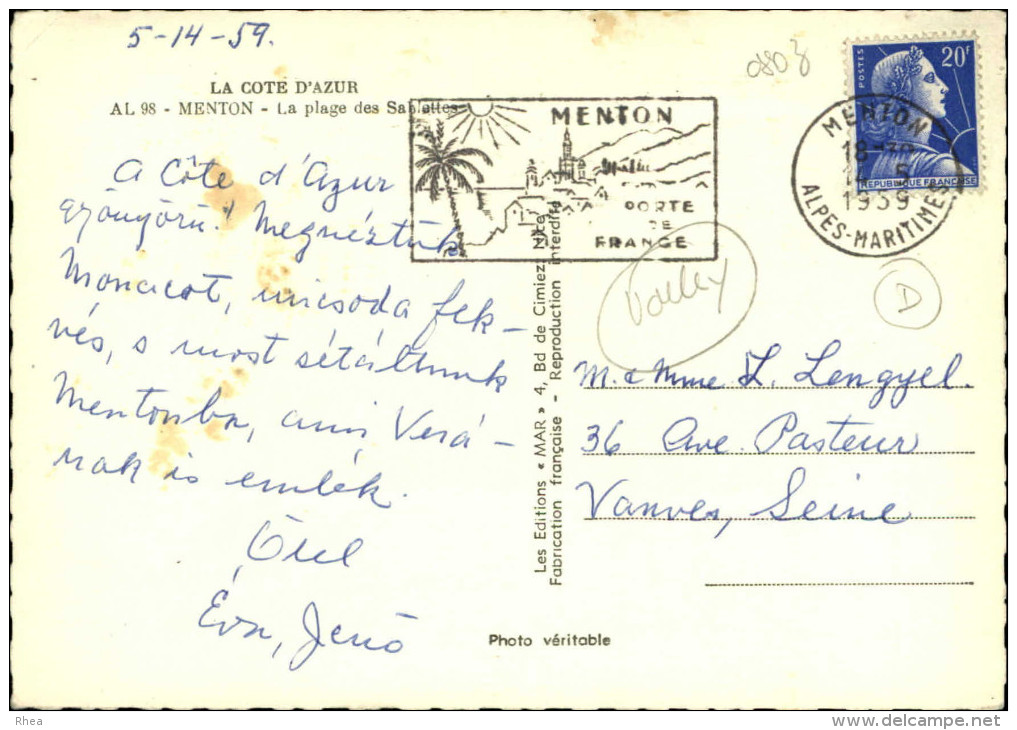 5-14-59.
LA COTE D'AZUR
AL 98 - MENTON - La plage des Sablettes
A Côte d'Azur
gyönyörü! Megnéztük
Monacot, micsoda fek-
vés, s most sétáltunk
Mentonba, ami Verá-
nak is emlék.
Ölel
Éva, Jenö
MENTON
PORTE
DE
FRANCE
Les Editions « MAR » 4, Bd de Cimiez Nice
Fabrication française - Reproduction interdite
Photo véritable
POSTES
20F
REPUBLIQUE FRANÇAISE
MENTON
18-30
5
1959
ALPES-MARITIMES
D
M. & Mme L. Lengyel.
36 Ave. Pasteur
Vanves, Seine
Rhea
www.delcampe.net